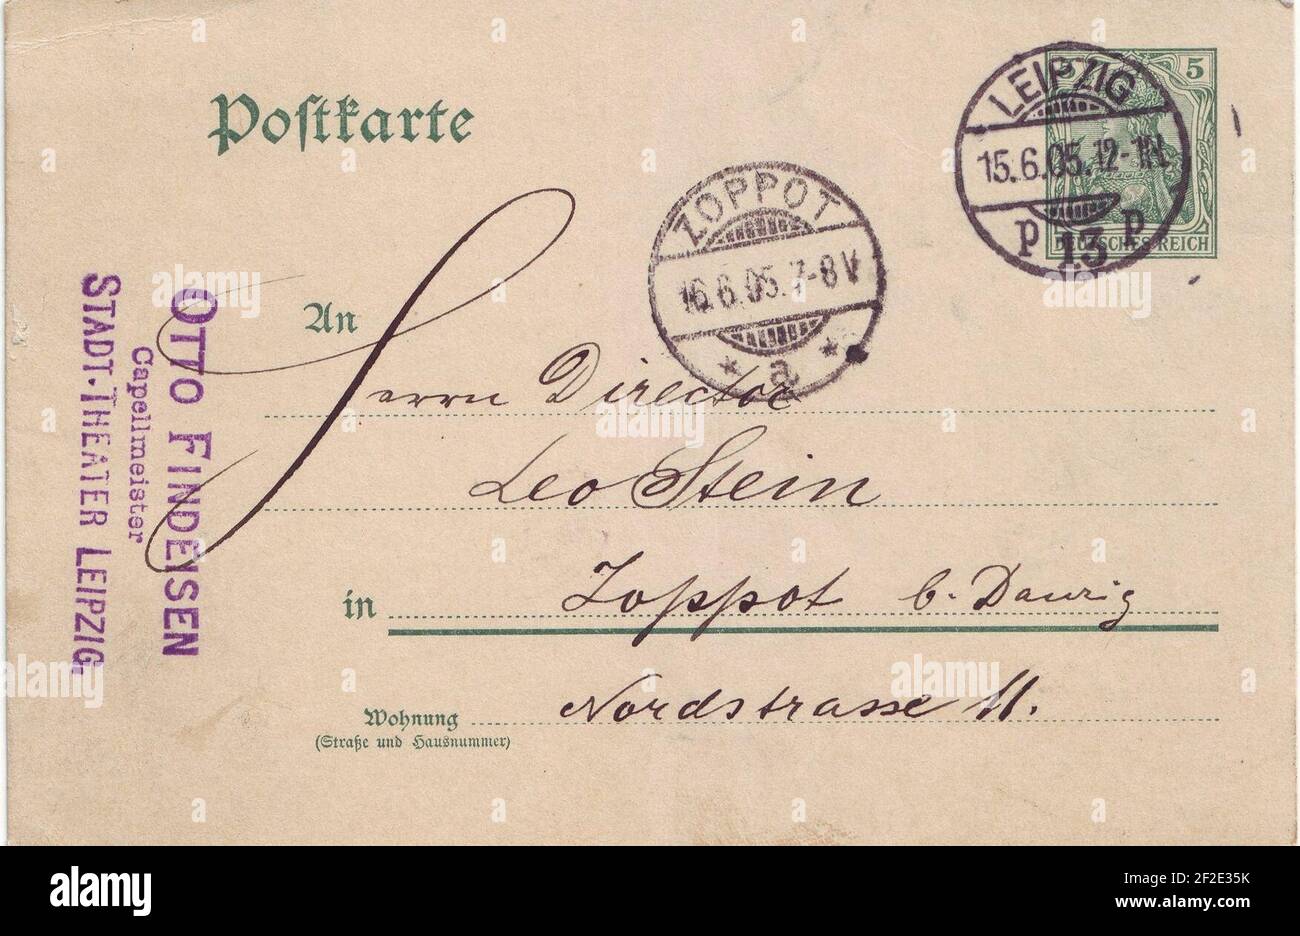 Postkarte
LEIPZIG
15.6.05.12-1N.
p 13 p
5
DEUTSCHES REICH
ZOPPOT
16.6.05.7-8V
* a *
An
Herrn Director
Leo Stein
in Zoppot b. Danzig
Wohnung Nordstrasse 11.
(Straße und Hausnummer)
OTTO FINDEISEN
Capellmeister
STADT-THEATER LEIPZIG.
alamy
Image ID: 2F2E35K
www.alamy.com